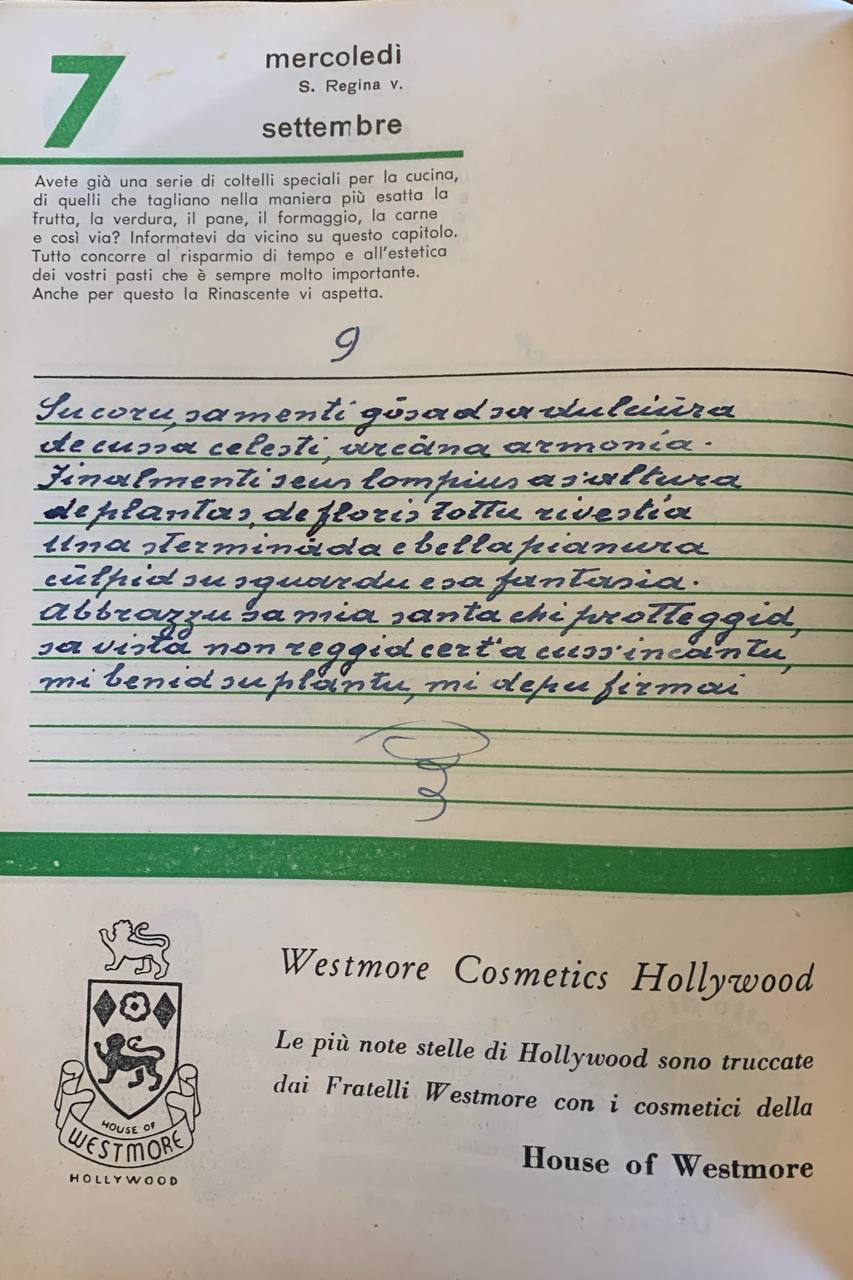 7
mercoledì
S. Regina v.
settembre
Avete già una serie di coltelli speciali per la cucina,
di quelli che tagliano nella maniera più esatta la
frutta, la verdura, il pane, il formaggio, la carne
e così via? Informatevi da vicino su questo capitolo.
Tutto concorre al risparmio di tempo e all'estetica
dei vostri pasti che è sempre molto importante.
Anche per questo la Rinascente vi aspetta.
9
Su coru, sa menti gōsad sa dulciūra
de cussa celesti, arcāna armonía.
Finalmenti seus lompius a s'altura
de plantas, de floris tottu rivestía
Una sterminàda e bella pianura
cūlpid su sguardu e sa fantasia.
Abbrazzu sa mia santa chi protteggid,
sa vista non reggid cert'a cuss'incantu,
mi benid su plantu, mi depu firmai
Westmore Cosmetics Hollywood
Le più note stelle di Hollywood sono truccate
dai Fratelli Westmore con i cosmetici della
House of Westmore
HOUSE OF
WESTMORE
HOLLYWOOD